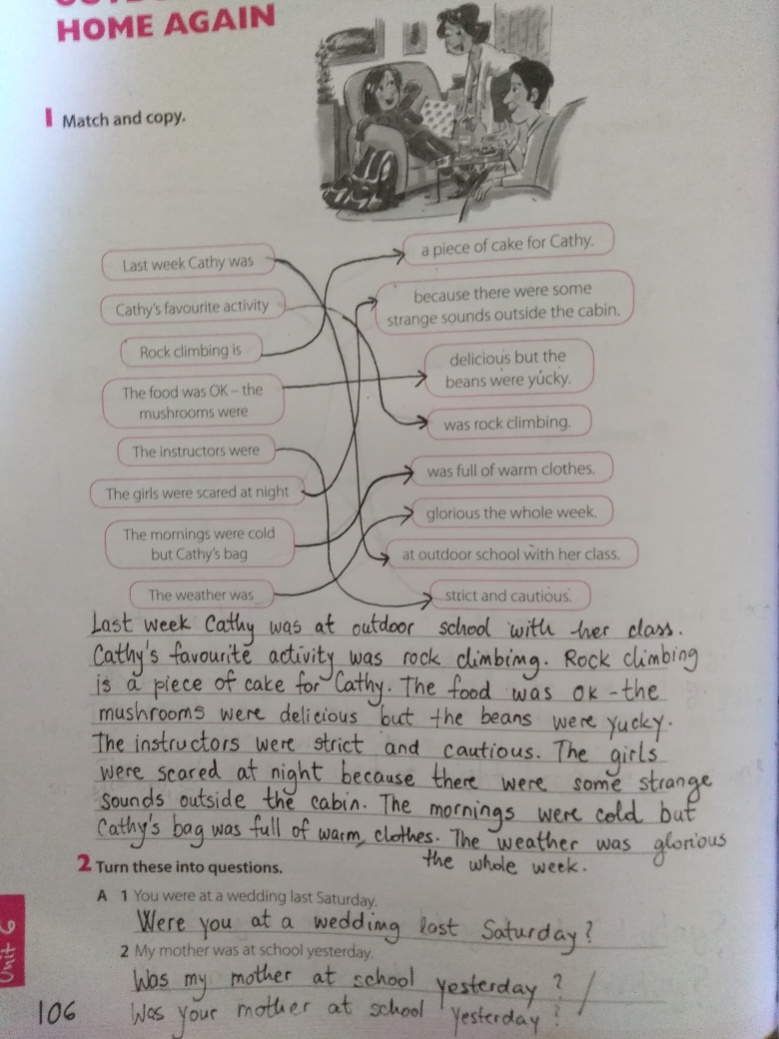 HOME AGAIN
1 Match and copy.
Last week Cathy was
Cathy's favourite activity
Rock climbing is
The food was OK – the
mushrooms were
The instructors were
The girls were scared at night
The mornings were cold
but Cathy's bag
The weather was
a piece of cake for Cathy.
because there were some
strange sounds outside the cabin.
delicious but the
beans were yucky.
was rock climbing.
was full of warm clothes.
glorious the whole week.
at outdoor school with her class.
strict and cautious.
Last week Cathy was at outdoor school with her class.
Cathy's favourite activity was rock climbing. Rock climbing
is a piece of cake for Cathy. The food was OK - the
mushrooms were delicious but the beans were yucky.
The instructors were strict and cautious. The girls
were scared at night because there were some strange
sounds outside the cabin. The mornings were cold but
Cathy's bag was full of warm clothes. The weather was glorious
the whole week.
2 Turn these into questions.
A 1 You were at a wedding last Saturday.
Were you at a wedding last Saturday?
2 My mother was at school yesterday.
Was my mother at school yesterday? /
Was your mother at school yesterday?
Unit 6
106